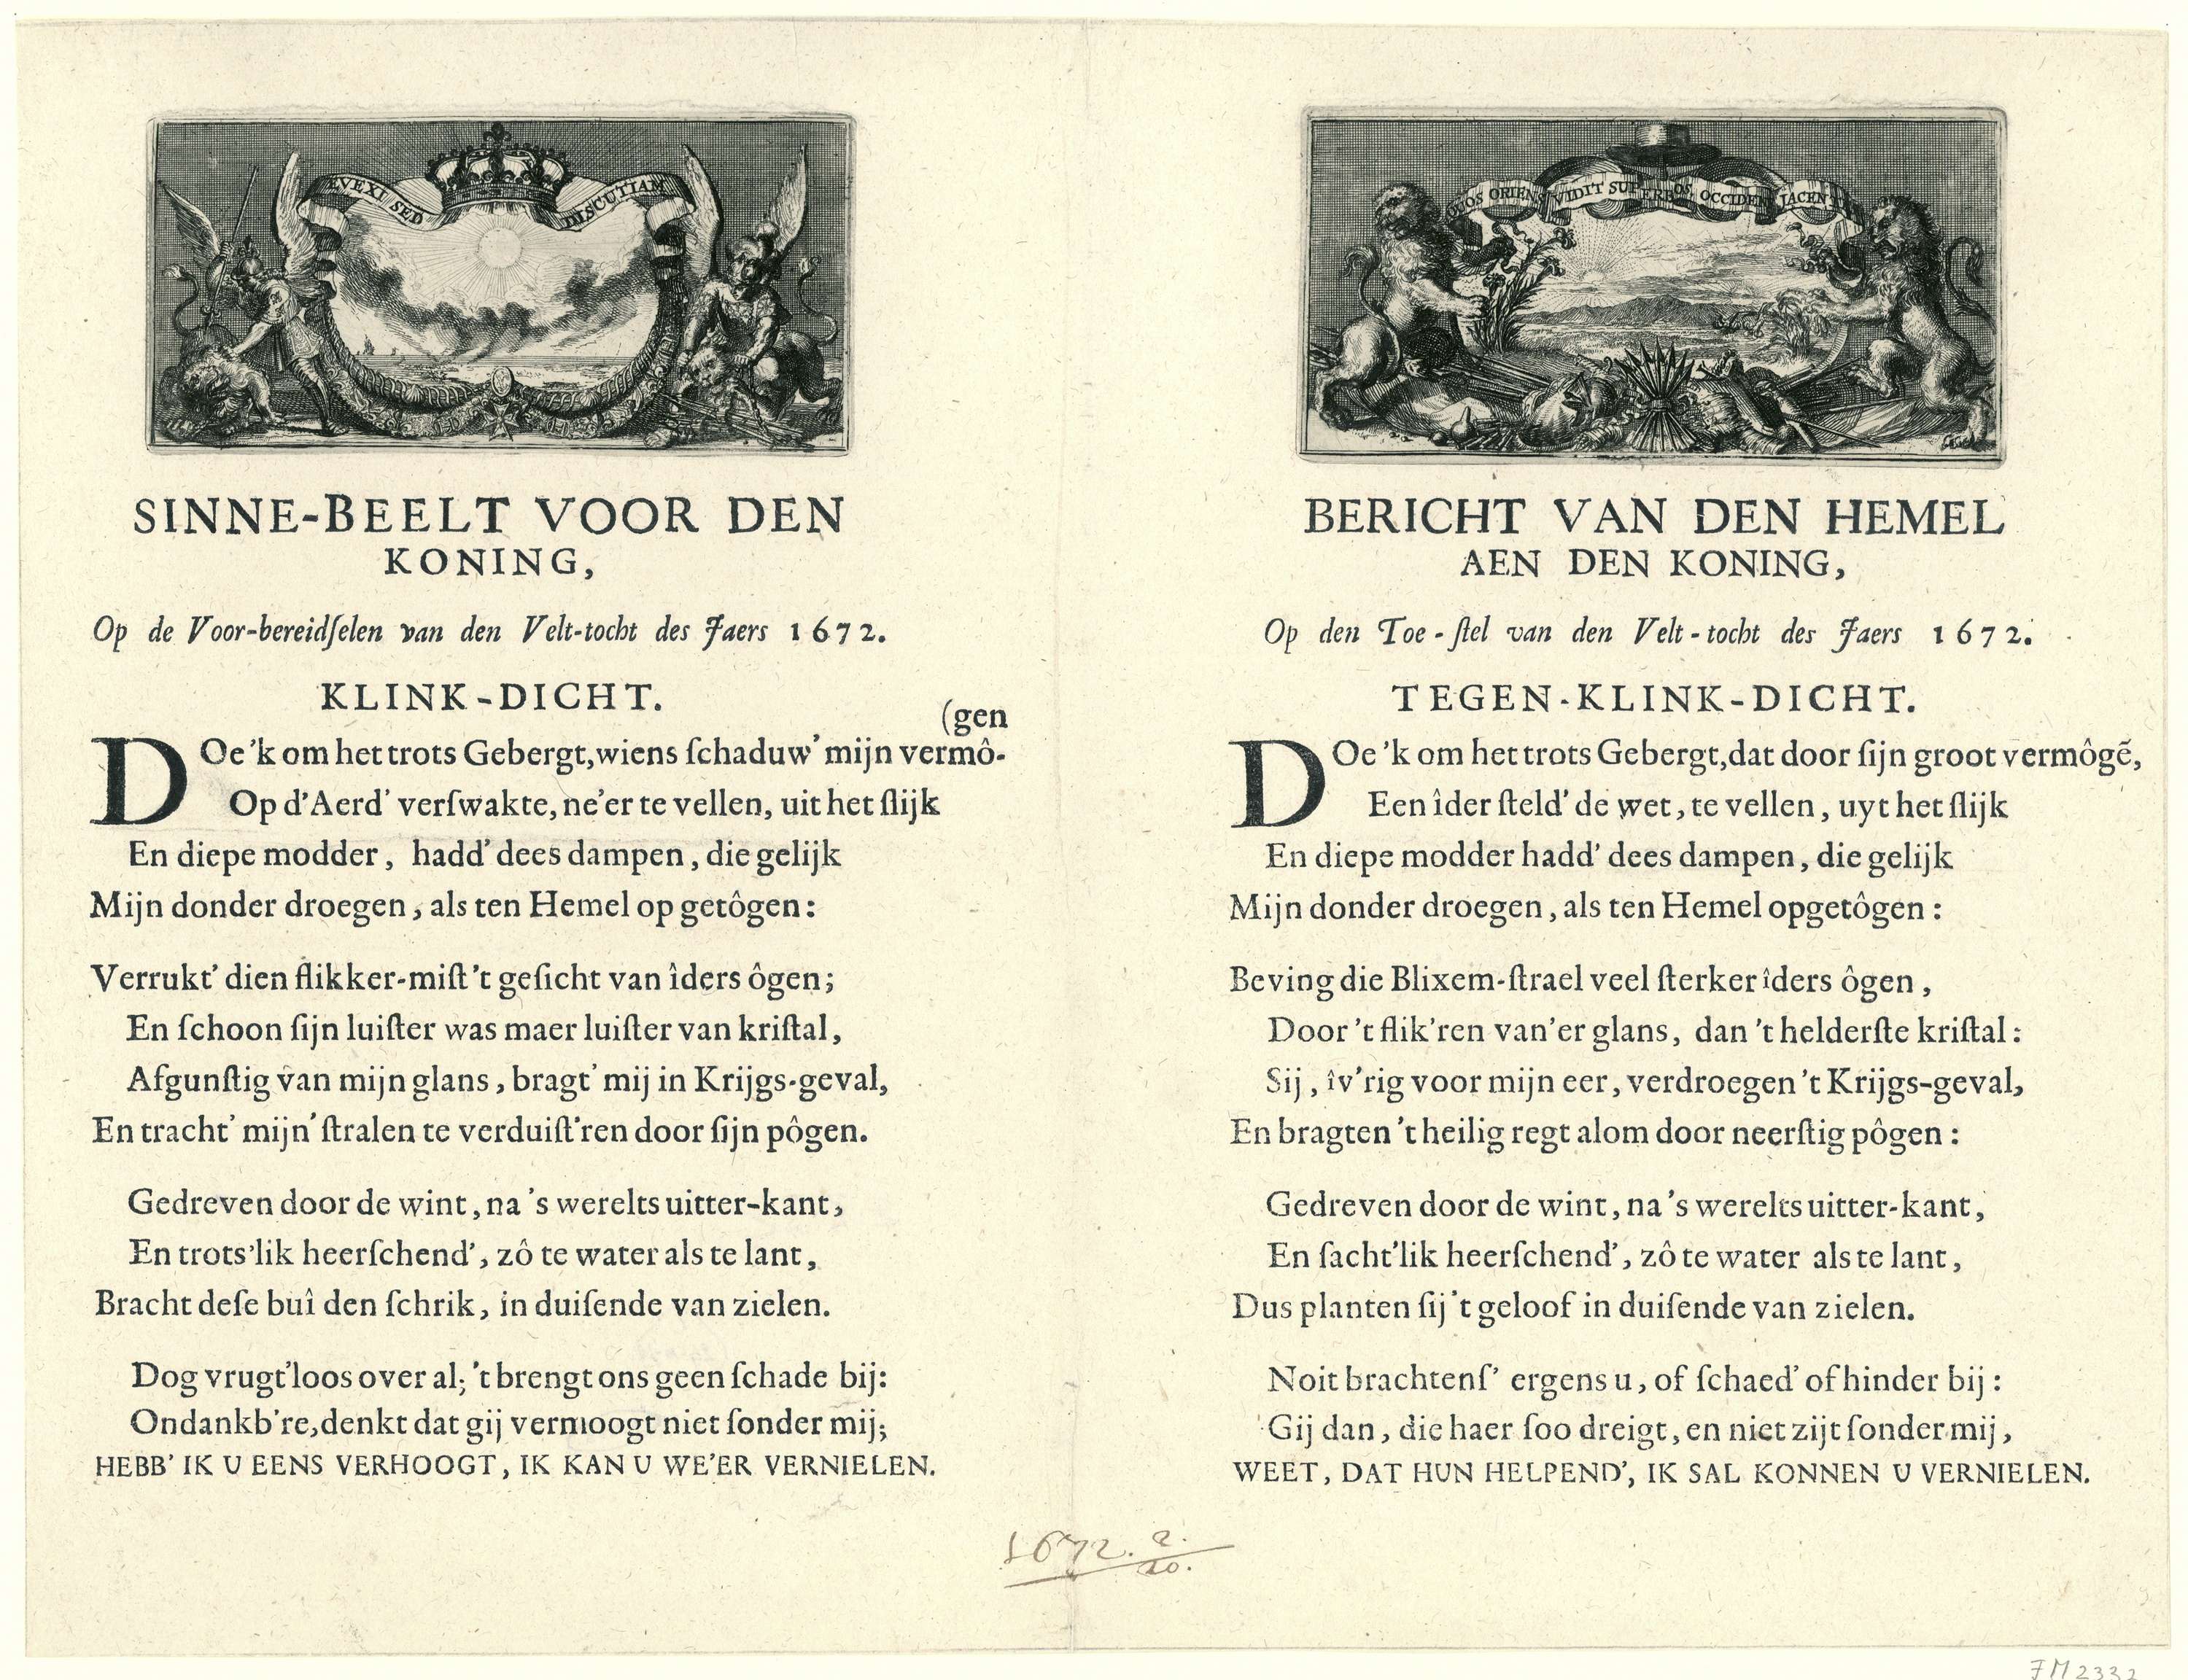 EVEXI SED DISCUTIAM
SINNE-BEELT VOOR DEN
KONING,
Op de Voor-bereidſelen van den Velt-tocht des Jaers 1672.
KLINK-DICHT.
(gen
DOe 'k om het trots Gebergt, wiens ſchaduw' mijn vermô-
Op d'Aerd' verſwakte, ne'er te vellen, uit het ſlijk
En diepe modder, hadd' dees dampen, die gelijk
Mijn donder droegen, als ten Hemel op getôgen:
Verrukt' dien flikker-miſt 't geſicht van îders ôgen;
En ſchoon ſijn luiſter was maer luiſter van kriſtal,
Afgunſtig van mijn glans, bragt' mij in Krijgs-geval,
En tracht' mijn' ſtralen te verduiſt'ren door ſijn pôgen.
Gedreven door de wint, na 's werelts uitter-kant,
En trots'lik heerſchend', zô te water als te lant,
Bracht deſe buî den ſchrik, in duiſende van zielen.
Dog vrugt'loos over al; 't brengt ons geen ſchade bij:
Ondankb're, denkt dat gij vermoogt niet ſonder mij;
HEBB' IK U EENS VERHOOGT, IK KAN U WE'ER VERNIELEN.
QUOS ORIENS VIDIT SUPERBOS, OCCIDENS JACEN
BERICHT VAN DEN HEMEL
AEN DEN KONING,
Op den Toe-ſtel van den Velt-tocht des Jaers 1672.
TEGEN-KLINK-DICHT.
DOe 'k om het trots Gebergt, dat door ſijn groot vermôgẽ,
Een îder ſteld' de wet, te vellen, uyt het ſlijk
En diepe modder hadd' dees dampen, die gelijk
Mijn donder droegen, als ten Hemel opgetôgen:
Beving die Blixem-ſtrael veel ſterker îders ôgen,
Door 't flik'ren van'er glans, dan 't helderſte kriſtal:
Sij, îv'rig voor mijn eer, verdroegen 't Krijgs-geval,
En bragten 't heilig regt alom door neerſtig pôgen:
Gedreven door de wint, na 's werelts uitter-kant,
En ſacht'lik heerſchend', zô te water als te lant,
Dus planten ſij 't geloof in duiſende van zielen.
Noit brachtenſ' ergens u, of ſchaed' of hinder bij:
Gij dan, die haer ſoo dreigt, en niet zijt ſonder mij,
WEET, DAT HUN HELPEND', IK SAL KONNEN U VERNIELEN.
1672. 2.
20.
FM 2332